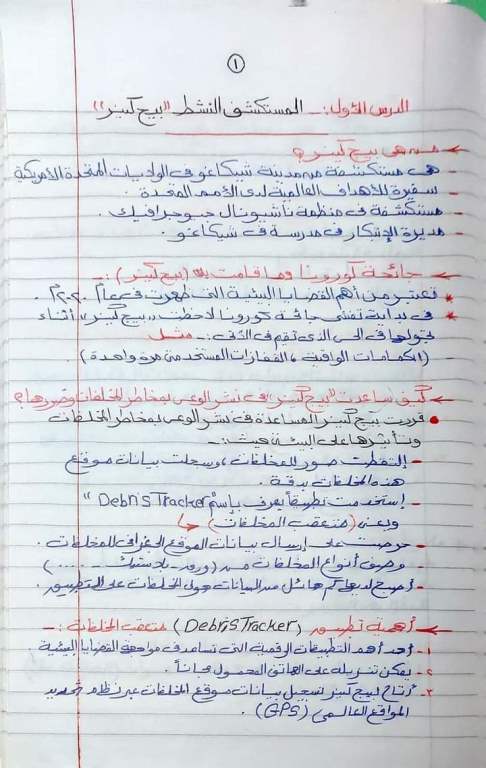 ١
الدرس الأول:- المستكشف النشط "بيج كينر"
من هى بيج كينر؟
- هى مستكشفة من مدينة شيكاغو فى الولايات المتحدة الأمريكية
- سفيرة للأهداف العالمية لدى الأمم المتحدة.
- مستكشفة فى منظمة ناشيونال جيوجرافيك.
- مديرة الإبتكار فى مدرسة فى شيكاغو.
جائحة كورونا وما قامت به (بيج كينر):-
* تعتبر من أهم القضايا البيئية التى ظهرت فى عام ٢٠٢٠م.
* فى بداية تفشى جائحة كورونا لاحظت "بيج كينر" أثناء
تجولها فى الحى الذى تقيم فى الآتى:- مثل
- (الكمامات الواقية، القفازات المستخدمة مرة واحدة)
كيف ساعدت "بيج كينر" فى نشر الوعى بمخاطر المخلفات وضررها؟
● قررت بيج كينر المساعدة فى نشر الوعى بمخاطر المخلفات
وتأثيرها على البيئة حيث:-
- إلتقطت صور للمخلفات، وسجلت بيانات موقع
هذه المخلفات بدقة.
- إستخدمت تطبيقاً يعرف بإسم "Debris Tracker"
ويعنى (متعقب المخلفات)
- حرصت على إرسال بيانات الموقع الجغرافى للمخلفات.
- وصف أنواع المخلفات من (ورق - بلاستيك - .....)
- أصبح لديها كم هائل من البيانات حول المخلفات على التطبيق.
أهمية تطبيق (Debris Tracker) متعقب المخلفات:-
١- أحد أهم التطبيقات الرقمية التى تساعد فى مواجهة القضايا البيئية.
٢- يمكن تنزيله على الهاتف المحمول مجاناً.
٣- أتاح لبيج كينر تسجيل بيانات موقع المخلفات عبر نظام تحديد
المواقع العالمى (GPS).